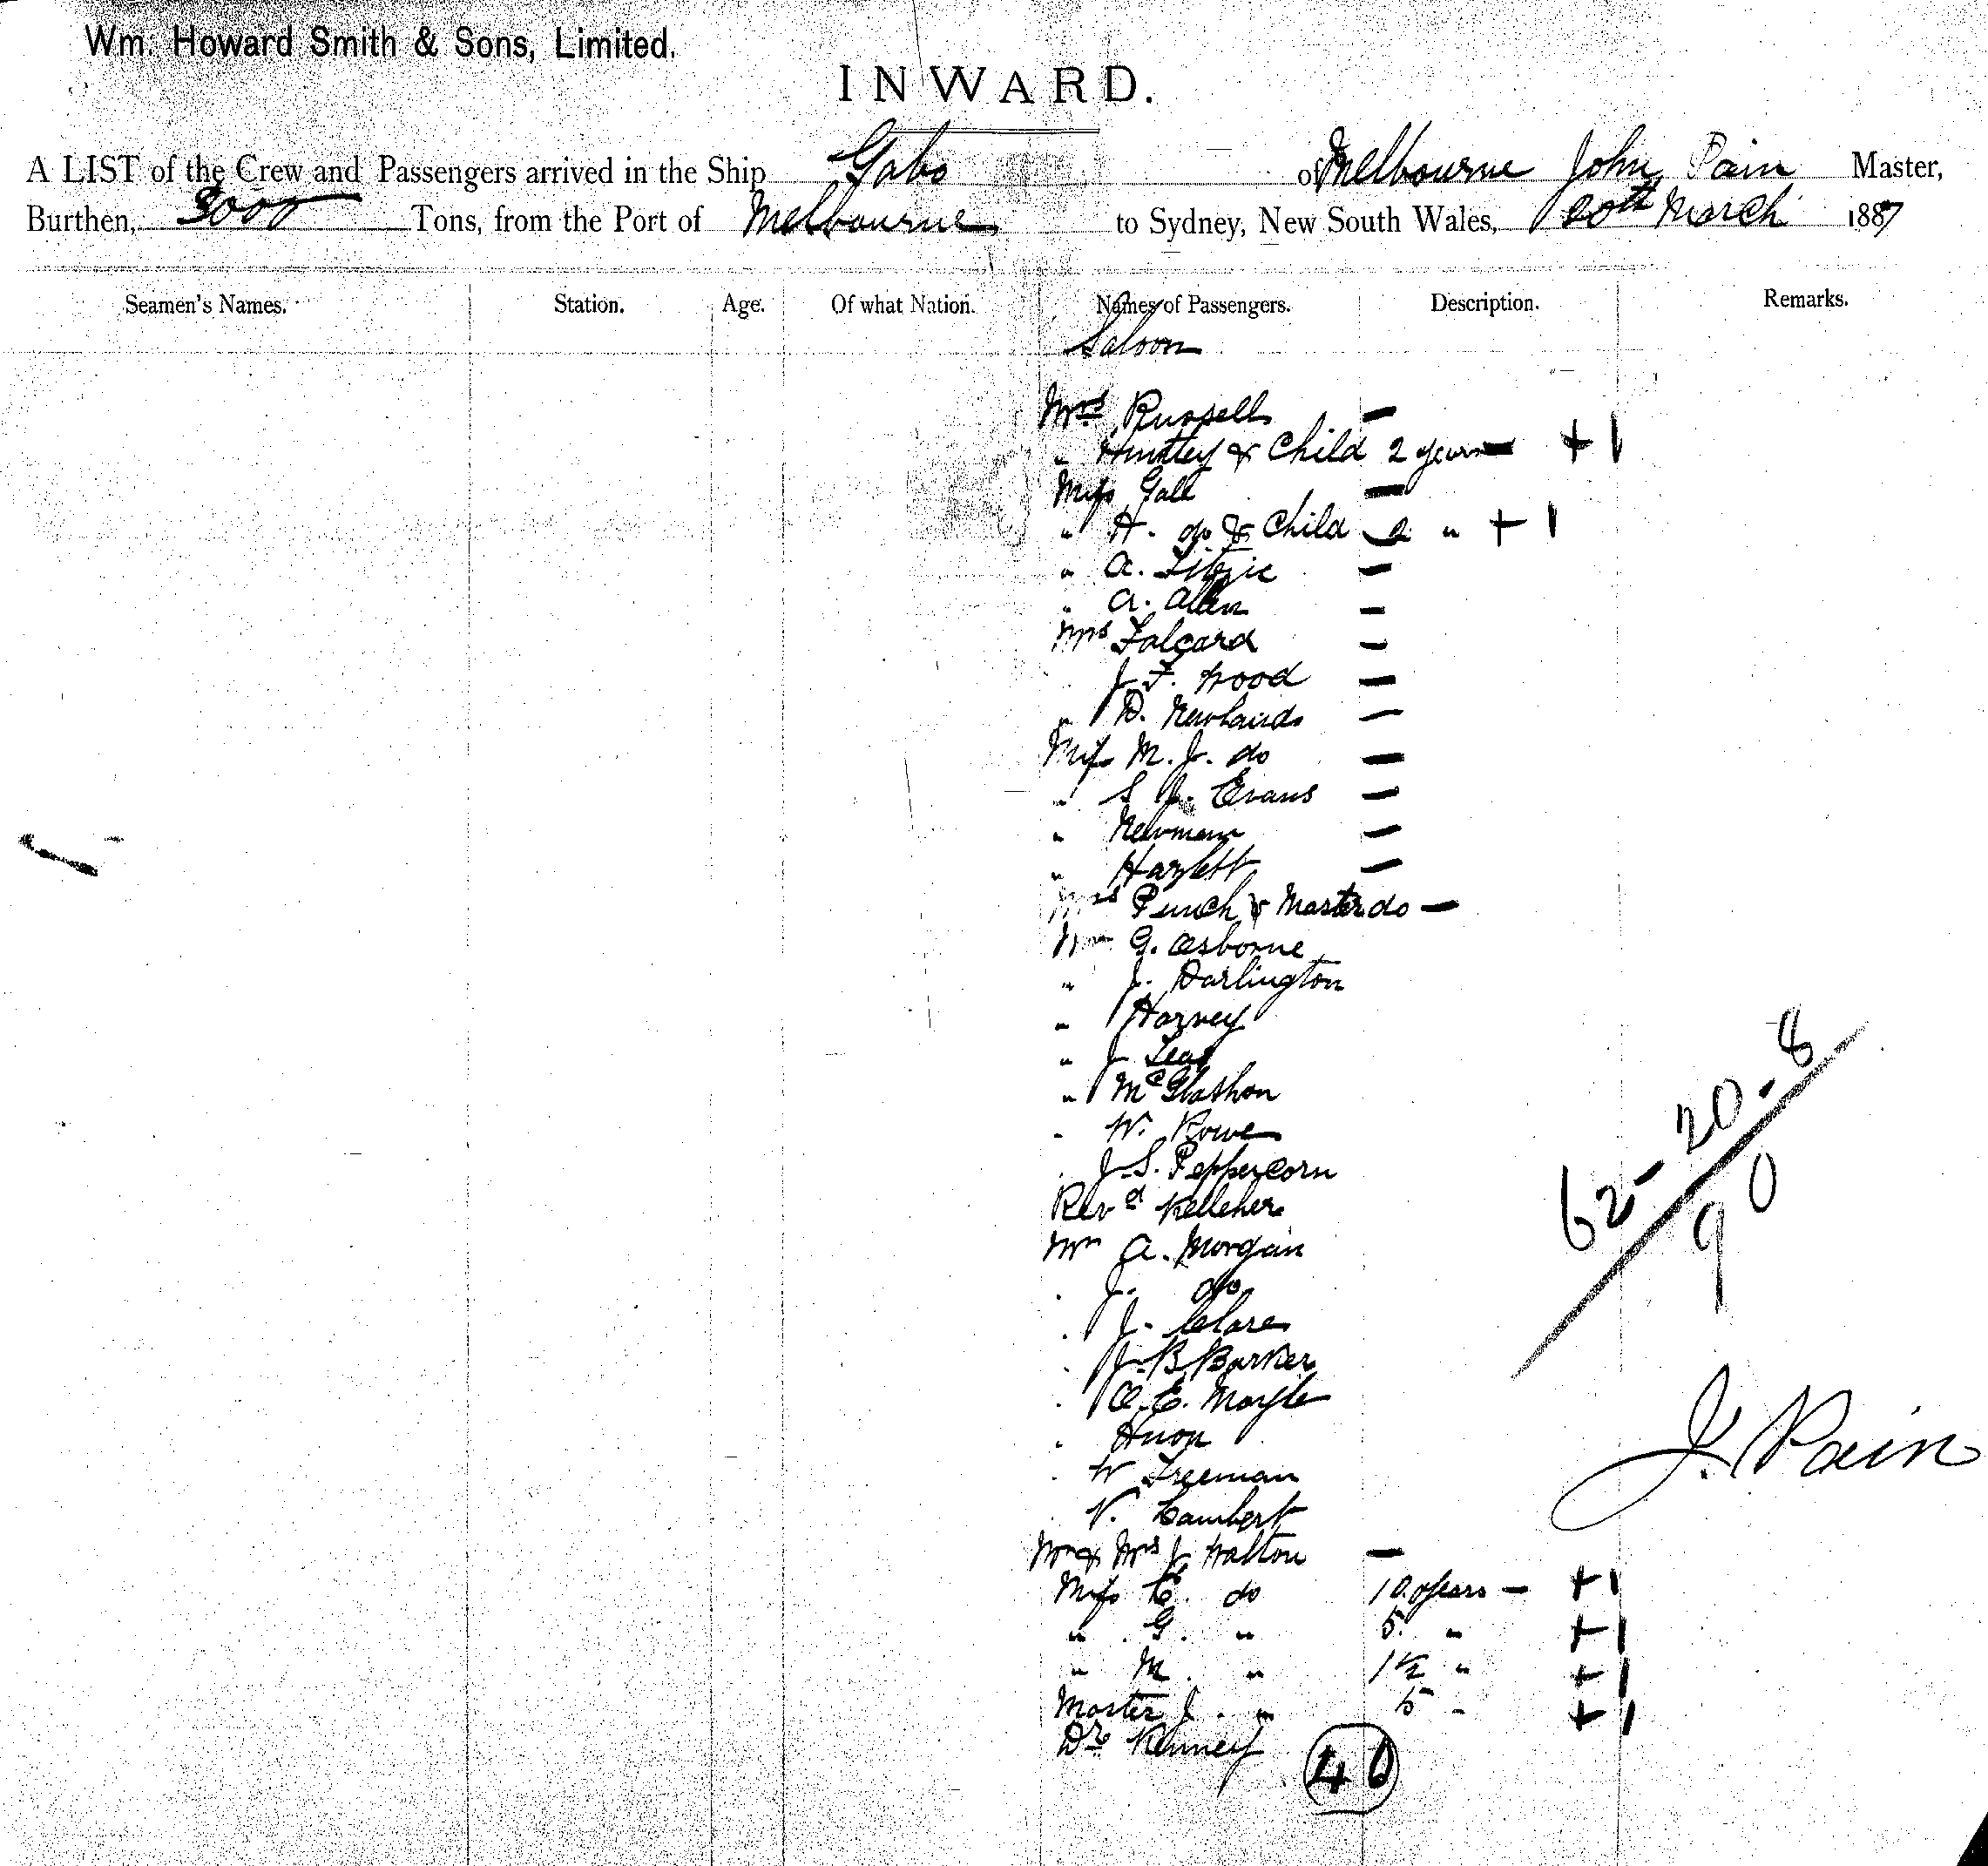 Wm. Howard Smith & Sons, Limited.
INWARD.
A LIST of the Crew and Passengers arrived in the Ship Gabo of Melbourne John Pain Master,
Burthen, 3000 Tons, from the Port of Melbourne to Sydney, New South Wales, 20th March 1887
Seamen's Names. Station. Age. Of what Nation. Names of Passengers. Description. Remarks.
Saloon
Mrs Russell —
" Huntley & Child 2 years — + 1
Miss Gall —
" H. do & Child 2 " + 1
" A. —
" A. Allen —
Mrs Falcard —
J. F. Wood —
" D. Newlands —
Miss M. J. do —
" S J. Evans —
" Newman —
" Hazlett —
Mrs Punch & Master do —
Mr G. Osborne
" J. Darlington
" Harvey
" J
" McGlashon
" W. Rowe
" J. S. Peppercorn
Revd Kelleher
Mr A. Morgan
" J. do
" J. Clare
" J. B Barker
" E. Moyle
" Huon
" W Freeman
" V. Lambert
Mr & Mrs J. Walton —
Miss C. do 10 years — + 1
" G. " 5 " + 1
" M. " 1 1/2 " + 1
Master J. " 5 " + 1
Dr. Kenney
40
62 - 20 - 8
90
J. Pain